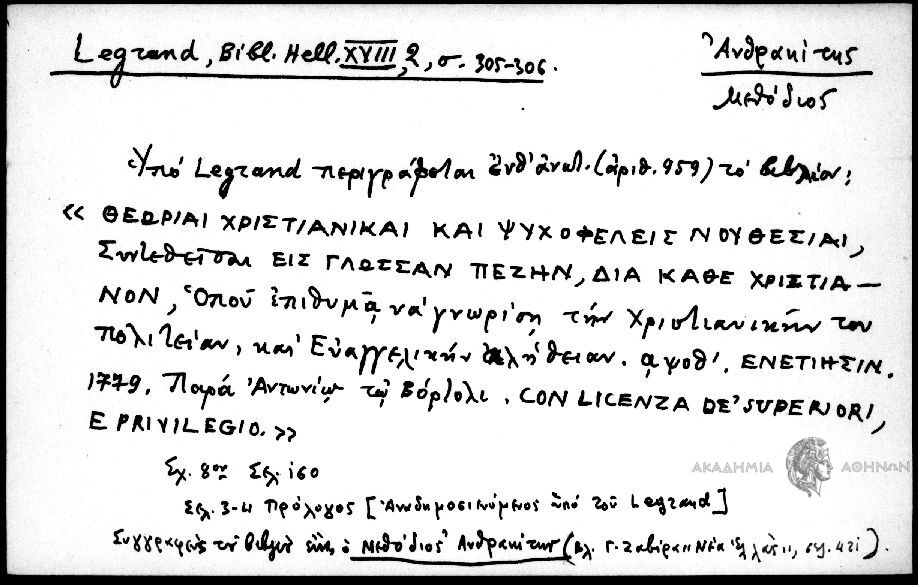 Legrand, Bibl. Hell. XVIII, 2, σ. 305-306.
Ἀνθρακίτης
Μεθόδιος
Ὑπό Legrand περιγράφεται ἐνθ' ἀνωτ. (ἀριθ. 959) τό βιβλίον:
« ΘΕΩΡΙΑΙ ΧΡΙΣΤΙΑΝΙΚΑΙ ΚΑΙ ΨΥΧΟΦΕΛΕΙΣ ΝΟΥΘΕΣΙΑΙ,
Συντεθεῖσαι ΕΙΣ ΓΛΩΣΣΑΝ ΠΕΖΗΝ, ΔΙΑ ΚΑΘΕ ΧΡΙΣΤΙΑ-
ΝΟΝ, Ὁποῦ ἐπιθυμᾷ νά γνωρίσῃ τήν Χριστιανικήν του
πολιτείαν, καί Εὐαγγελικήν ἀλήθειαν. αψοθ'. ΕΝΕΤΙΗΣΙΝ.
1779. Παρά Ἀντωνίῳ τῷ Βόρτολι. CON LICENZA DE' SUPERIORI,
E PRIVILEGIO. »
Σχ. 8ον Σελ. 160
Σελ. 3-4 Πρόλογος [Ἀναδημοσιευόμενος ὑπό τοῦ Legrand]
Συγγραφεύς τοῦ βιβλίου εἶναι ὁ Μεθόδιος Ἀνθρακίτης (Βλ. Γ. Ζαβίρα "Νέα Ἑλλάς", σελ. 421).
ΑΚΑΔΗΜΙΑ ΑΘΗΝΩΝ